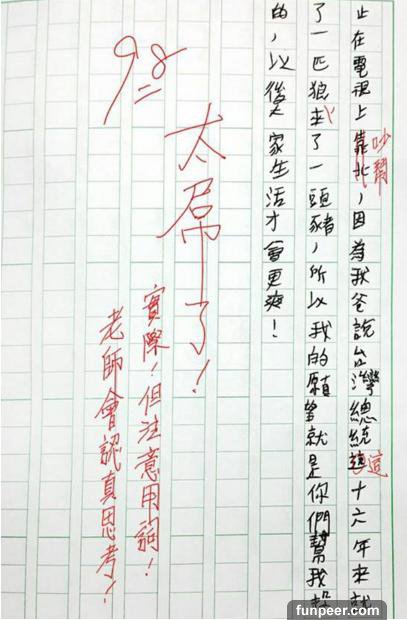 止在電視上靠北，因為我爸說台灣總統這十六年來就
吵鬧
這
了一匹狼了一頭豬，所以我的願望就是你們幫我
的，以後大家生活才會更爽！
98
太屌了！
實際！但注意用詞！
老師會認真思考！
funpeer.com